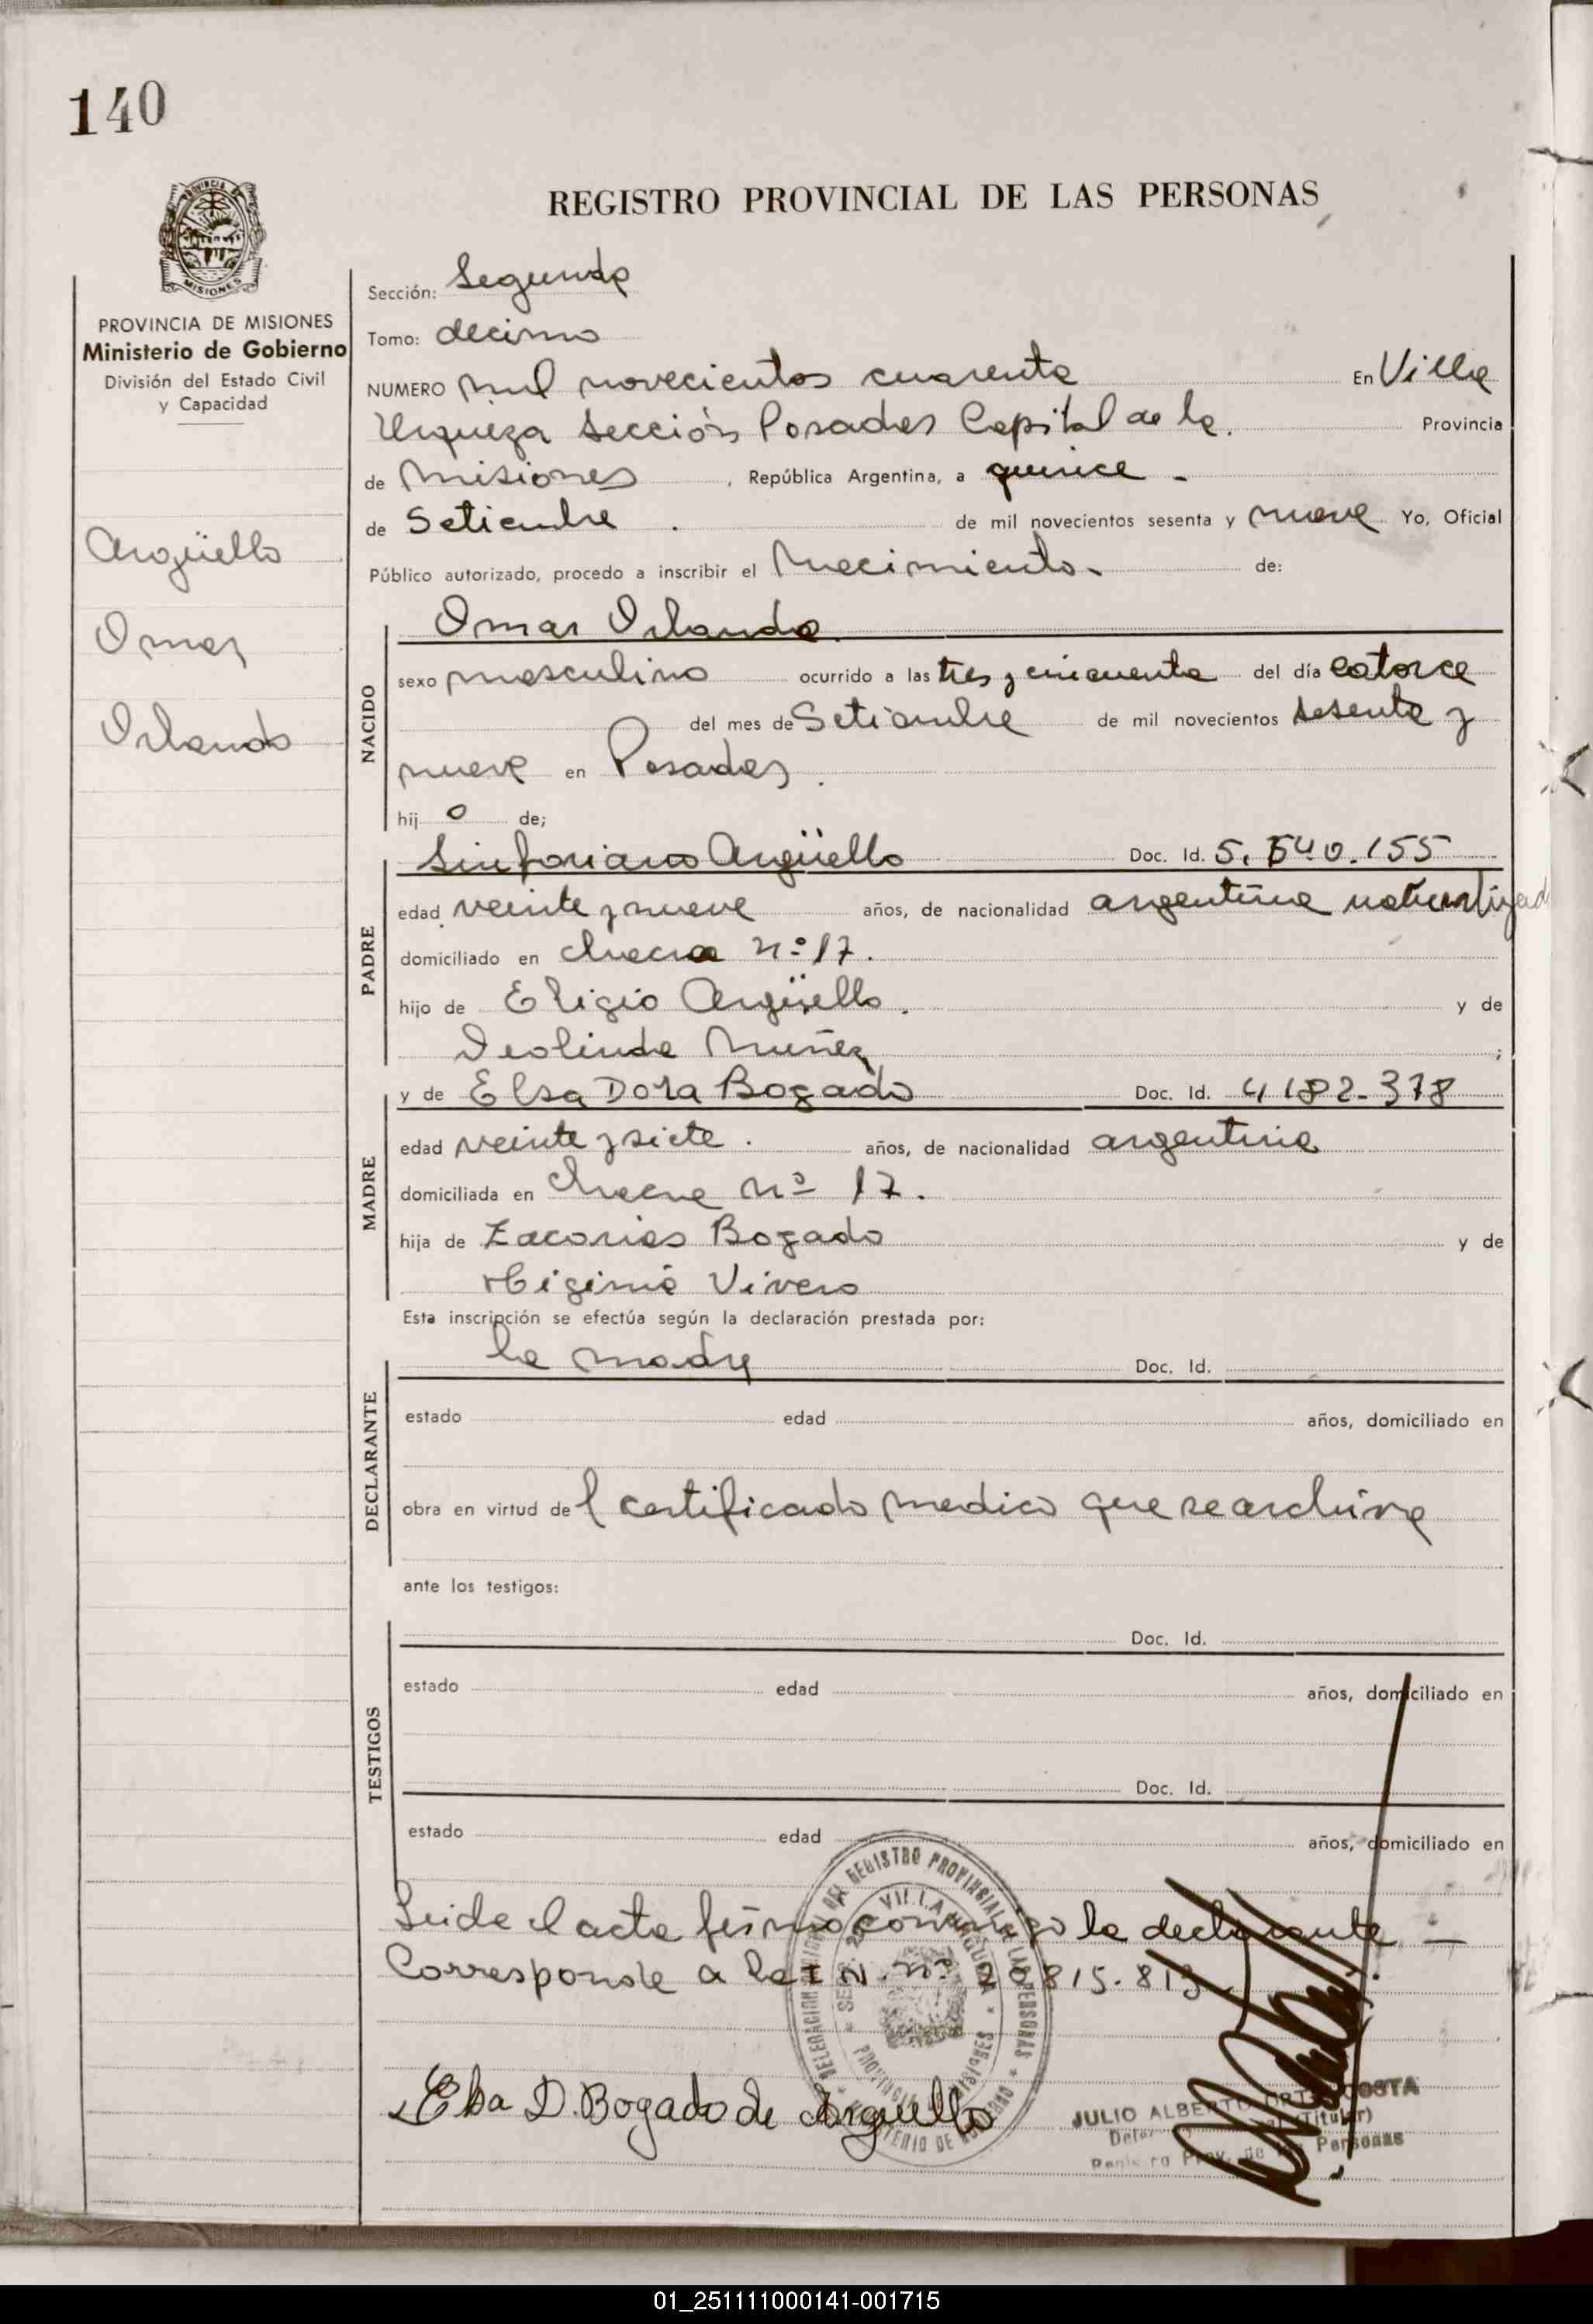 140
REGISTRO PROVINCIAL DE LAS PERSONAS
PROVINCIA DE
MISIONES
PROVINCIA DE MISIONES
Ministerio de Gobierno
División del Estado Civil
y Capacidad
Argüello
Omar
Orlando
Sección: Segunda
Tomo: decimo
NUMERO mil novecientos cuarenta En Villa
Urquiza Sección Posadas Capital de la. Provincia
de Misiones, República Argentina, a quince -
de Setiembre . de mil novecientos sesenta y nueve Yo, Oficial
Público autorizado, procedo a inscribir el Nacimiento.- de:
NACIDO
Omar Orlando.
sexo masculino ocurrido a las tres y cincuenta del día catorce
del mes de Setiembre de mil novecientos sesenta y
nueve en Posadas.
hij o de;
PADRE
Sinforiano Argüello Doc. Id. 5.540.155
edad veinte y nueve años, de nacionalidad argentina naturalizado
domiciliado en chacra nº 17.
hijo de Eligio Argüello. y de
Deolinda Nuñez ;
MADRE
y de Elsa Dora Bogado Doc. Id. 4182.378
edad veinte y siete . años, de nacionalidad argentina
domiciliada en chacra nº 17.
hija de Zacarias Bogado y de
Higinia Vivero
Esta inscripción se efectúa según la declaración prestada por:
DECLARANTE
la madre Doc. Id.
estado edad años, domiciliado en
obra en virtud del certificado medico que se archiva
ante los testigos:
TESTIGOS
Doc. Id.
estado edad años, domiciliado en
Doc. Id.
estado edad años, domiciliado en
Leida el acta firma conmigo la declarante -
Corresponde a la nº 20815.813
Elsa D. Bogado de Arguello
DELEGACION DEL REGISTRO PROVINCIAL DE LAS PERSONAS
VILLA URQUIZA
JULIO ALBERTO COSTA
(Titular)
Prov. de las Personas
01_251111000141-001715